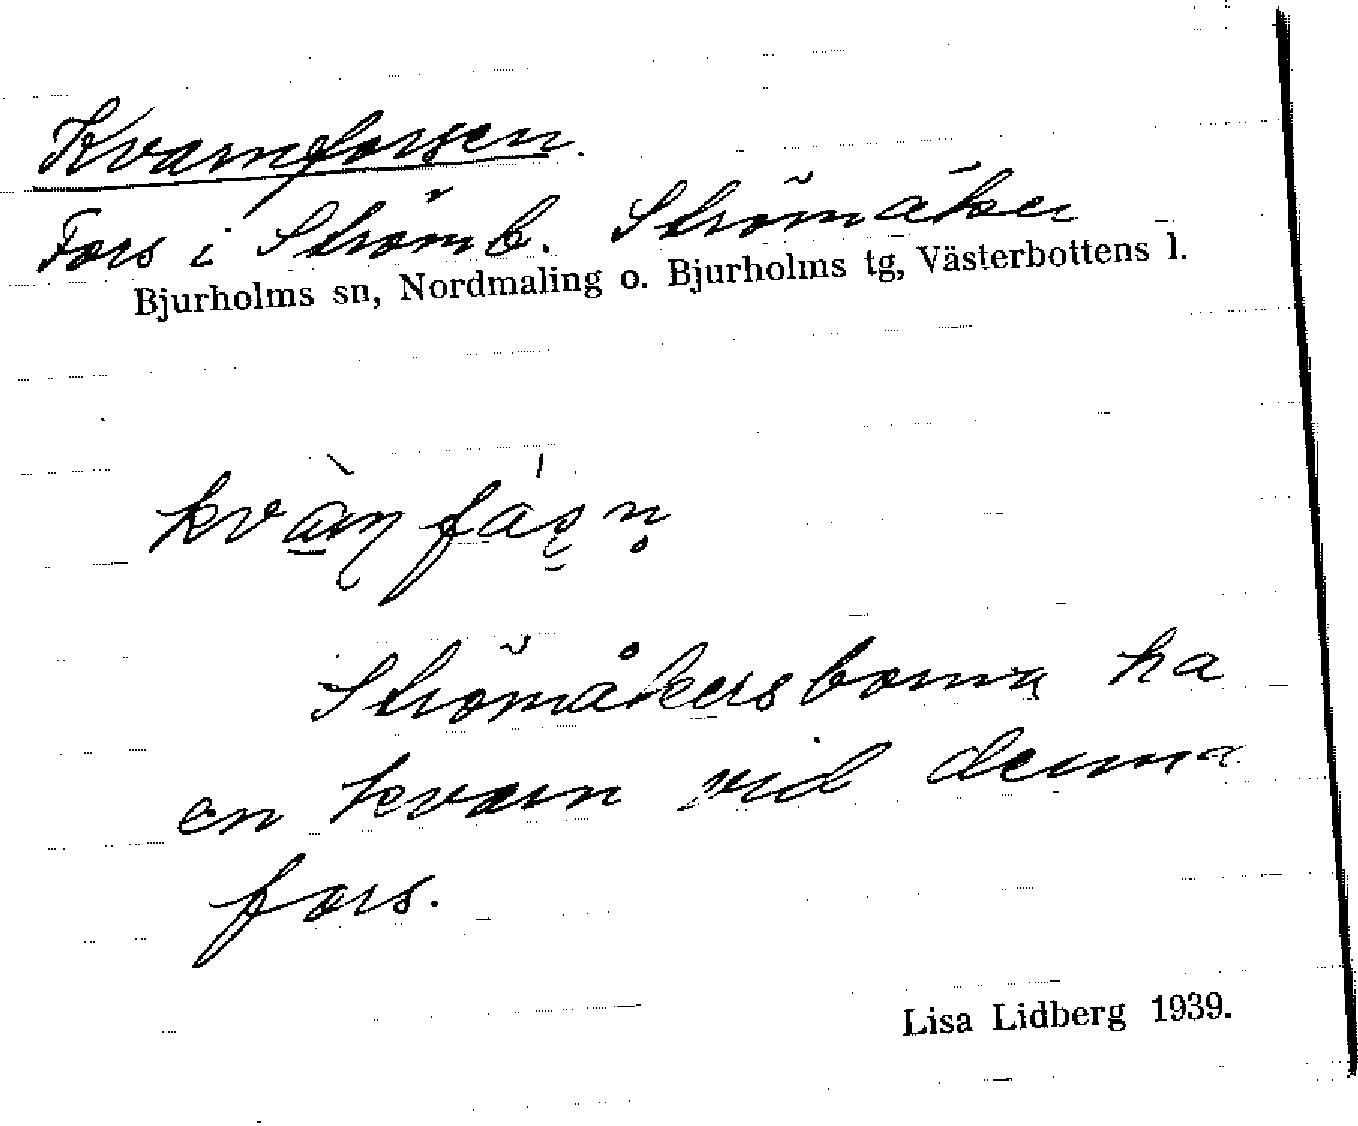 Kvarnforsen.
Fors i Strömb. Strömåker
Bjurholms sn, Nordmaling o. Bjurholms tg, Västerbottens l.
Strömåkersborna ha
en kvarn vid denna
fors.
Lisa Lidberg 1939.